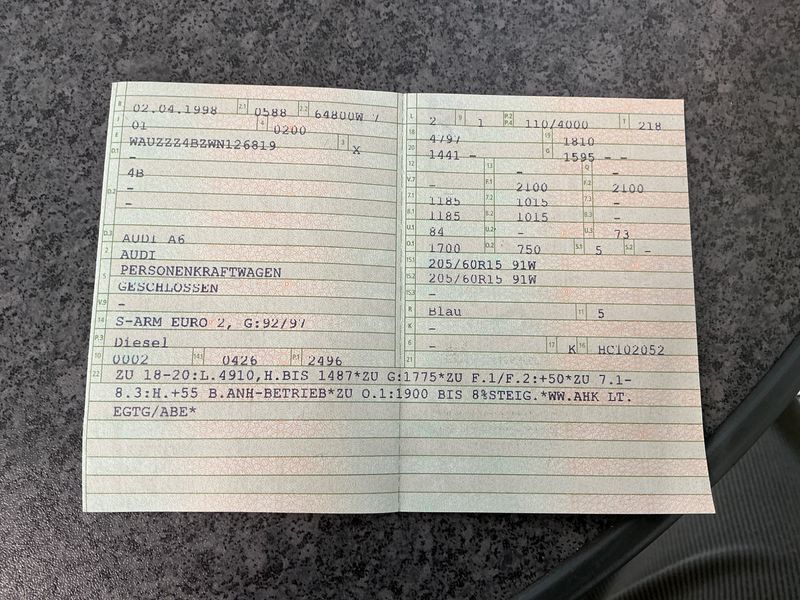 B 02.04.1998 2.1 0588 2.2 64800W 7
J 01 4 0200
E WAUZZZ4BZWN126819 3 X
D.1 -
4B
D.2 -
-
D.3 AUDI A6
2 AUDI
5 PERSONENKRAFTWAGEN
GESCHLOSSEN
V.9 -
14 S-ARM EURO 2, G:92/97
P.3 Diesel
10 0002 14.1 0426 P.1 2496
L 2 9 1 P.2 P.4 110/4000 T 218
18 4797 19 1810
20 1441 - G 1595 - -
12 - 13 - Q -
V.7 - F.1 2100 F.2 2100
7.1 1185 7.2 1015 7.3 -
8.1 1185 8.2 1015 8.3 -
U.1 84 U.2 - U.3 73
O.1 1700 O.2 750 S.1 5 S.2 -
15.1 205/60R15 91W
15.2 205/60R15 91W
15.3 -
R Blau 11 5
K -
6 - 17 K 16 HC102052
21
22 ZU 18-20:L.4910,H.BIS 1487*ZU G:1775*ZU F.1/F.2:+50*ZU 7.1-
8.3:H.+55 B.ANH-BETRIEB*ZU O.1:1900 BIS 8%STEIG.*WW.AHK LT.
EGTG/ABE*